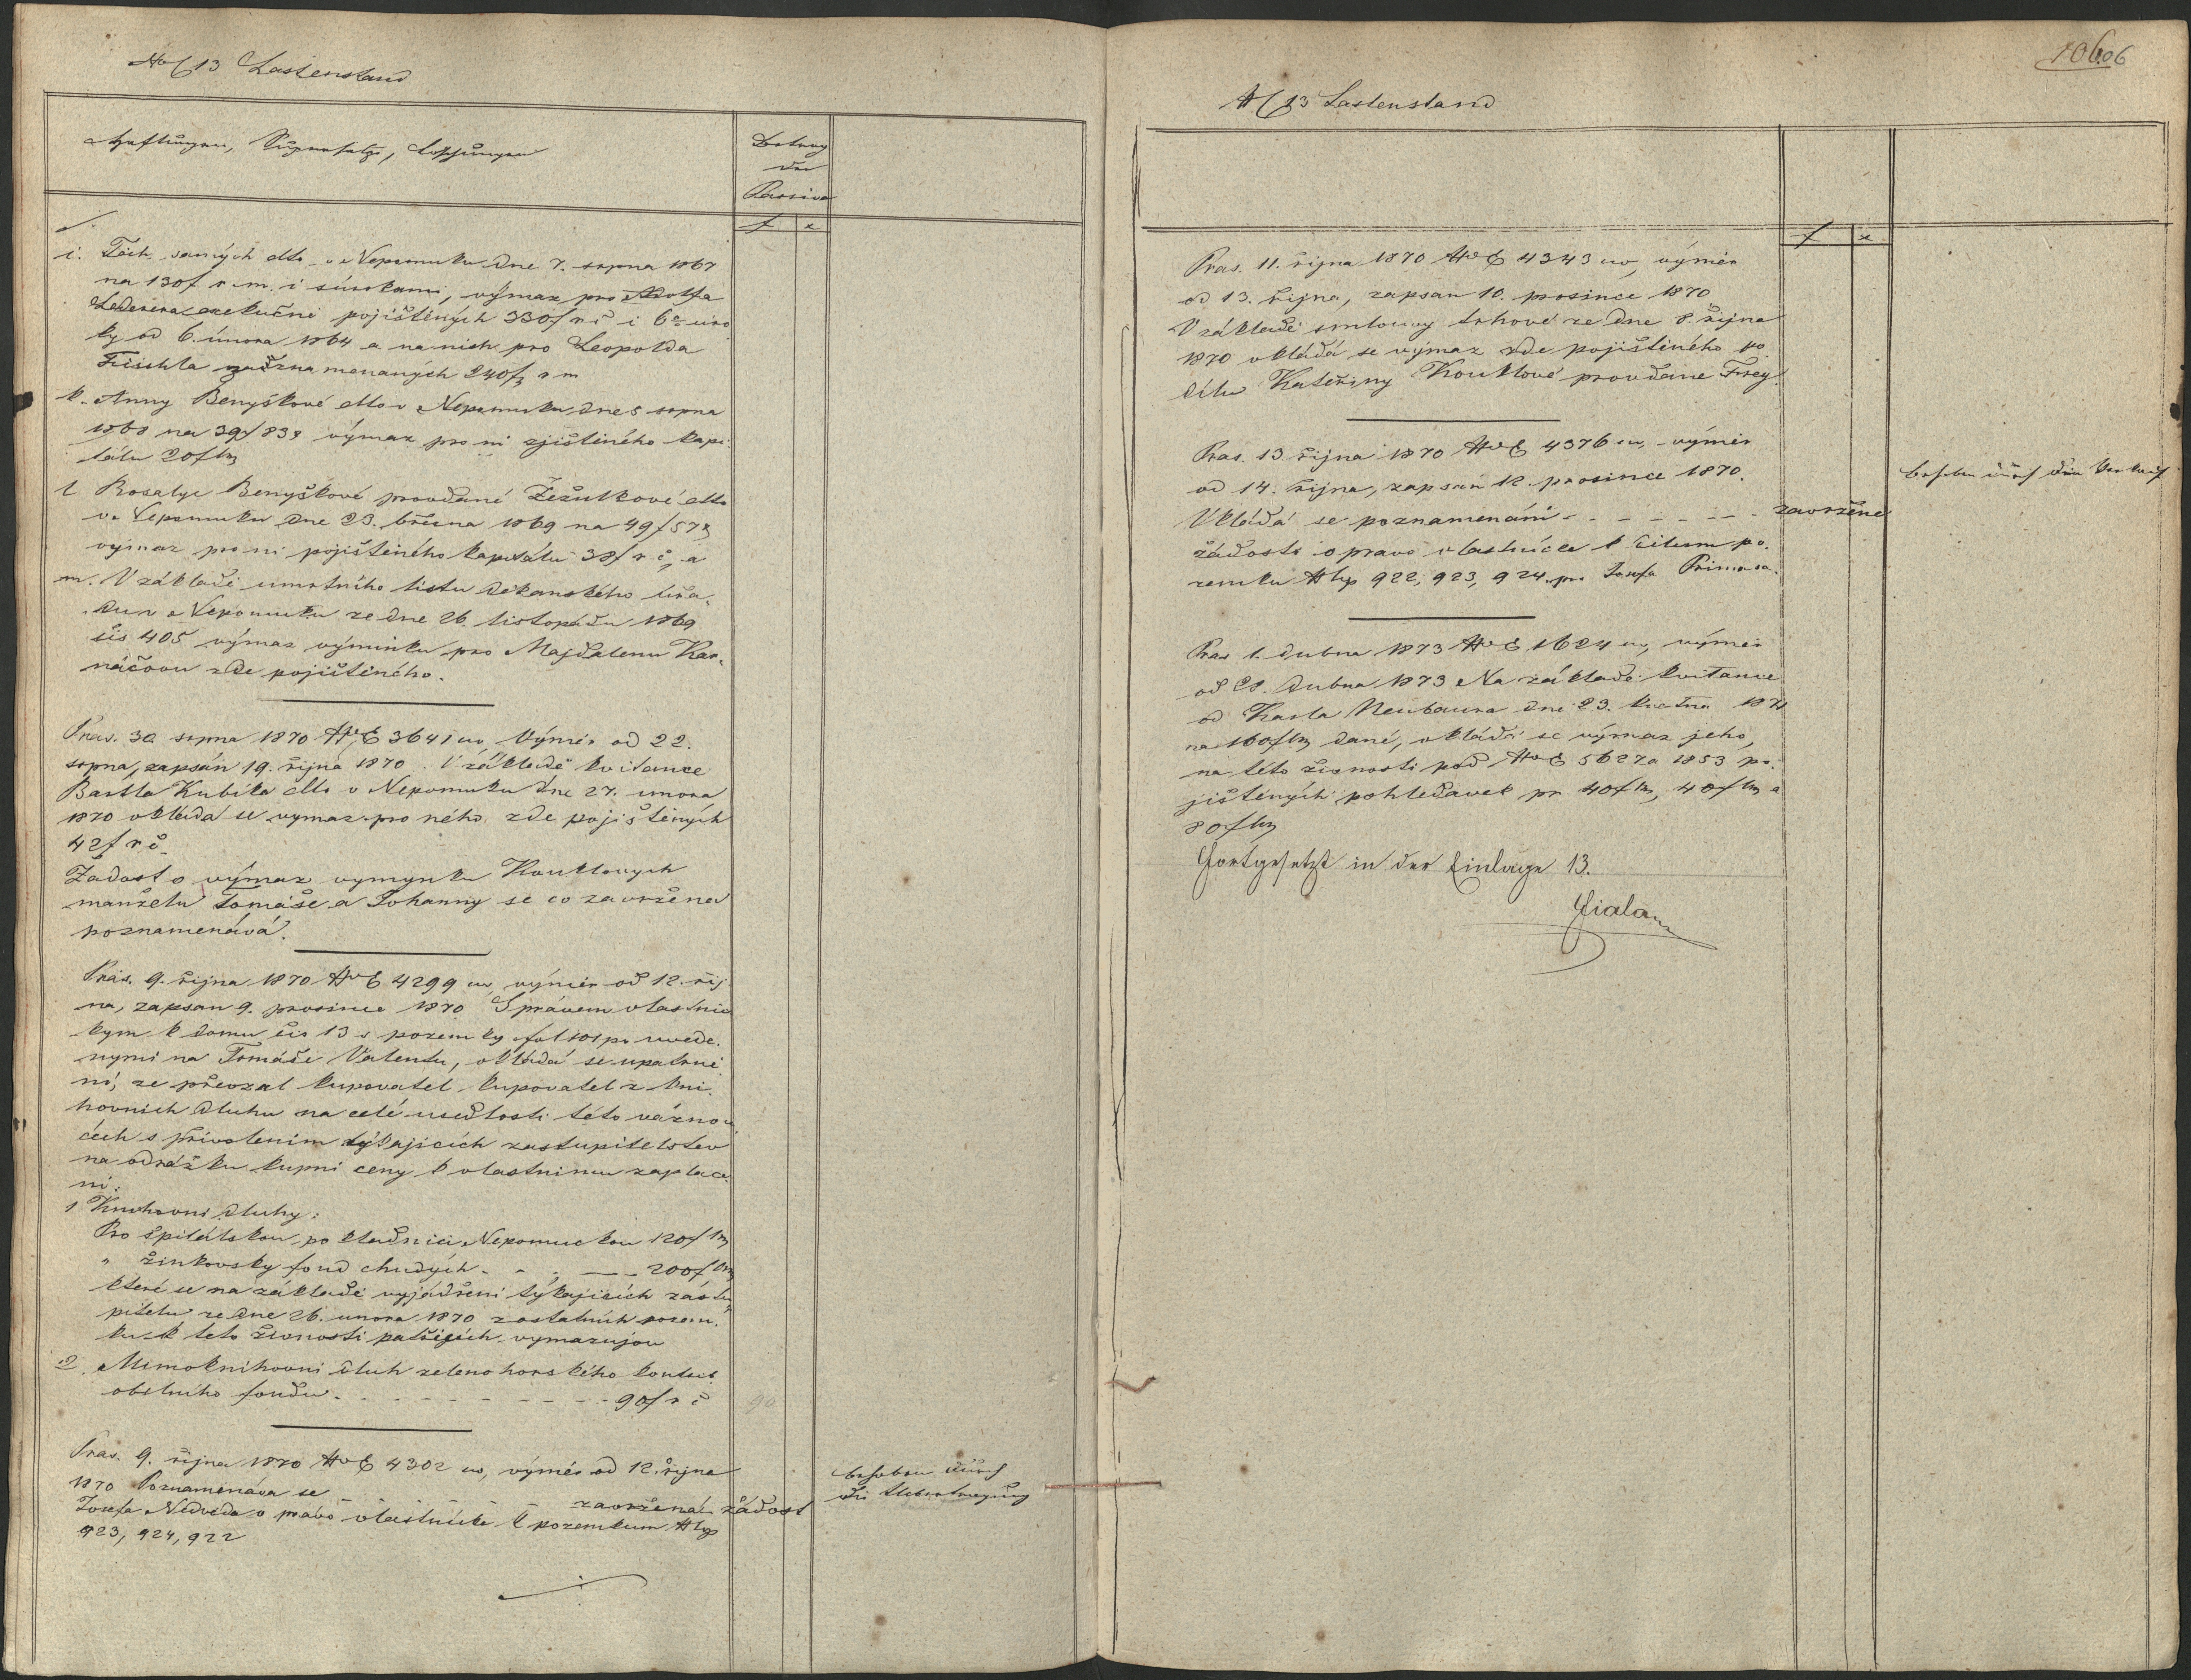 NC 13 Lastenstand
Haftungen, Supersatze, Loschungen
Betrag
der
Passiva
f x
i. Těch samých dtto v Nepomuku dne 7. srpna 1867
na 130 f r. m. i s úrokami, výmaz pro Adolfa
Lederera exekučně pojištěných 330 f r č i 6% úro
ky od 6. února 1864 a na nich pro Leopolda
Fischla zaznamenaných 240 f r m
k. Anny Benyškové dtto v Nepomuku dne 5 srpna
1868 na 39 f 83 x výmaz pro ni zjištěného kapi
tálu 20 f km
l Rosalye Benyškové provdané Žežulkové dtto
v Nepomuku dne 23. března 1869 na 49 f 57 x
výmaz pro ni pojištěného kapitálu 38 f r. č, a
m. V základě umrtního listu děkanského úřa-
du v Nepomuku ze dne 26. listopadu 1869
čís 405 výmaz výminku pro Majdalenu Kar-
náčovou zde pojištěného.
Präs. 30 srpna 1870 NE 3641 civ. Výměr od 22.
srpna, zapsán 19. října 1870. V základě kvitance
Bartla Kubíka dtto v Nepomuku dne 27. unora
1870 vkládá se vymaz pro něho zde pojištěných
42 f r č.
Žadost o výmaz vymynku Kouklovych
manželu Tomáše a Johanny se co zavržena
poznamenává.
Präs. 9. října 1870 NE 4299 civ, výměr od 12. říj
na, zapsan 9. prosince 1870 S právem vlastnic
kym k domu čís 13 s pozemky fol 101 po uvede.
nymi na Tomáše Valentu, vkládá se upatrně
ní, ze převzal kupovatel kupovatel z kni
hovních dluhu na celé usedlosti této váznou
cích s přivolením týkajicích zastupitelstev
na odrážku kupní ceny k vlastnimu zaplace
ní:
1 Knihovni dluhy:
Pro špitálskou pokladnici Nepomuckou 120 f km
" žinkovsky fond chudých - - - 200 f km
které se na základě vyjádřeni týkajicích zástu
pitelu ze dne 26. unora 1870 z ostatních pozem.
ku k teto živnosti patřících vymazujou
2. Mimoknihovni dluh zelenohorského kontri
obilního fondu - - - - - - - 90 f r č
90
Präs. 9. října 1870 NE 4302 civ, výměr od 12. října
1870 Poznamenáva se zavržená žádost
Josefa Nedvěda o právo vlastnické k pozemkum N top
923, 924, 922
behoben durch
die Uebertragung
10606
NC 13 Lastenstand
f x
Präs. 11. října 1870 NE 4343 civ, výměr
od 13. října, zapsan 10. prosince 1870
V základě smlouvy trhové ze dne 8. října
1870 vkládá se výmaz zde pojištěného po
dílu Kateřiny Kouklové provdane Frey.
Präs. 13 října 1870 NE 4376 civ, výměr
od 14. října, zapsan 12. prosince 1870.
Vkládá se poznamenání - - - - - zavržené
žádosti o pravo vlastnícke k čilum po.
zemku N top 922, 923, 924. pro Josefa Primasa.
behoben durch den Verkauf
Präs 1. dubna 1873 NE 1624 civ, výměr
od 28. dubna 1873 Na základě kvitance
od Karla Neubaura dne 23. května 1871
na 160 f km dané, vkládá se výmaz jeho,
na této živnosti pod NE 5627 a 1853 po.
jištěných pohledavek pr 40 f km, 40 f km a
80 f km
Fortgesetzt in der Einlage 13.
Fiala